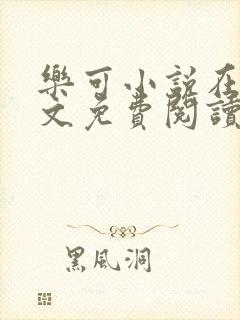 樂可小說在
文免費閱讀
黑風洞